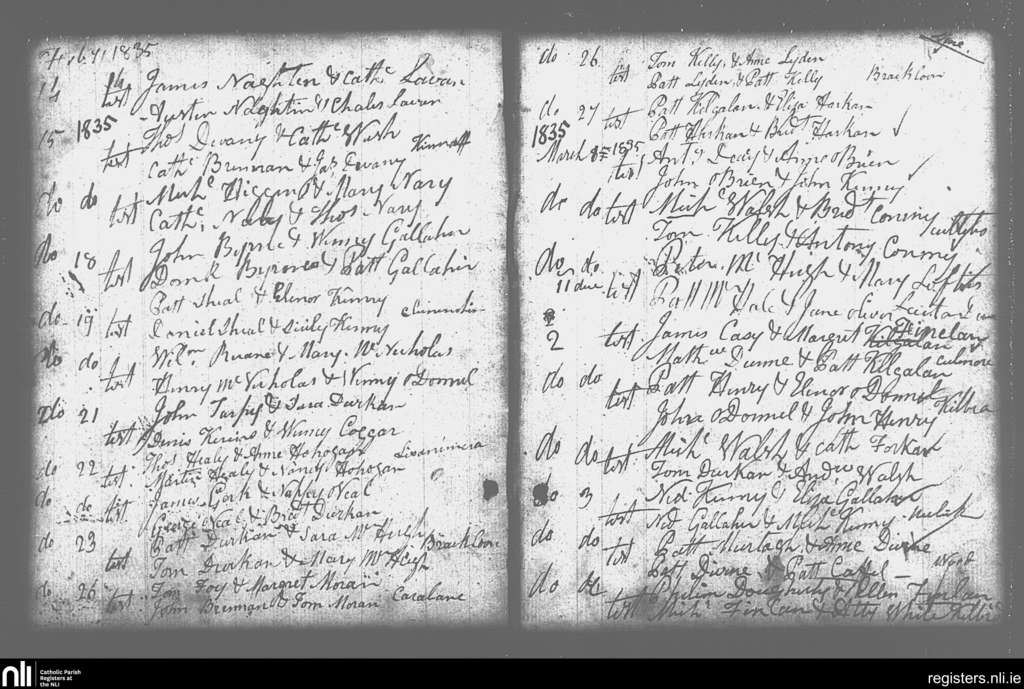 Feby 1835
14 14 James Naghten & Cathe Lavan
test Austen Naghtin & Charles Lavan
15 1835 Thos Devany & Cathe Walsh
test Cathe Brennan & Jas Devany
do do Michl Higgins & Mary Nary
test Cathe Nally & Thos Nary
do 18 John Byrne & Winney Gallaher
test Domk Byrne & Patt Gallaher
Patt Sheal & Elenor Kinney
do 19 test Daniel Sheal & Sicily Kinney
do do Wilm Ruane & Mary McNicholas
test Henry McNicholas & Winny oDonnel
do 21 John Tarpey & Sara Durkan
test Denis Kerins & Winney Coggar
do 22 Thos Healy & Anne Hohogan
test Martin Healy & Nancy Hohogan
do do James Gork & Nappy Neal
test George Neal & Bredt Durkan
do 23 Patt Durkan & Sara McHugh Brackloon
test Tom Durkan & Mary McHugh
do 26 Tom Foy & Margret Moran Caralane
test John Brennan & Tom Moran
do 26 Tom Kelly & Anne Lyden
test Patt Lyden & Patt Kelly Brackloon
do 27 Patt Kilgalan & Eliza Harkan
test Patt Harkan & Bridt Harkan
1835
March 1835 Anty Deasy & Anne oBrien
test John oBrien & John Kinney
do do Michl Walsh & Bridt Conway
test Tom Kelly & Antony Conway
do do Peter McHugh & Mary Loftus
test Patt McHale & Jane
2 James Casy & Margret Kilgalan
test Mathew Dunne & Patt Kilgalan Culmore
do do Patt Henry & Elenor oDonnel
test John oDonnel & John Henry Kilbra
do do Michl Walsh & Cath Forkan
test Tom Durkan & Andw Walsh
do 3 Ned Kinney & Eliza Gallaher
test Ned Gallaher & Michl Kinney
do do Patt Murtagh & Anne Divine
test Patt Divine & Patt
do do Phelim Dougherty & Ellen Finlan
test Michl Finlan & Atty White
nli Catholic Parish
Registers at
the NLI
registers.nli.ie